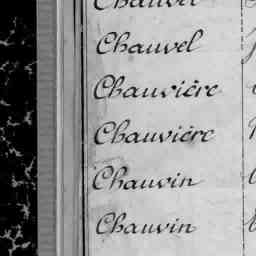 Chauvel
Chauvière
Chauvière
Chauvin
Chauvin